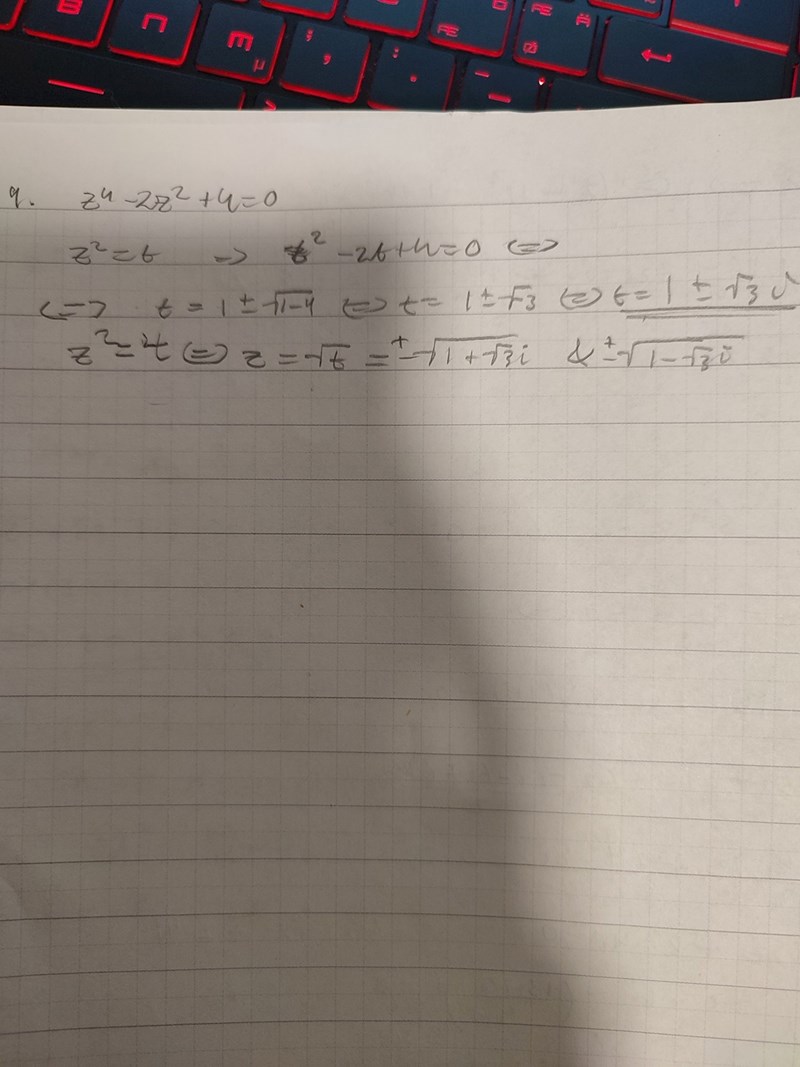 B n m µ ; , : . - _ Æ Ø Æ Ä
9. z⁴ -2z² +4=0
z² = t → t² -2t+4=0 <=>
<=> t = 1 ± √1-4 <=> t = 1 ± √-3 <=> t = 1 ± √3 i
z² = t <=> z = √t = ±√1+√3i & ±√1-√3i